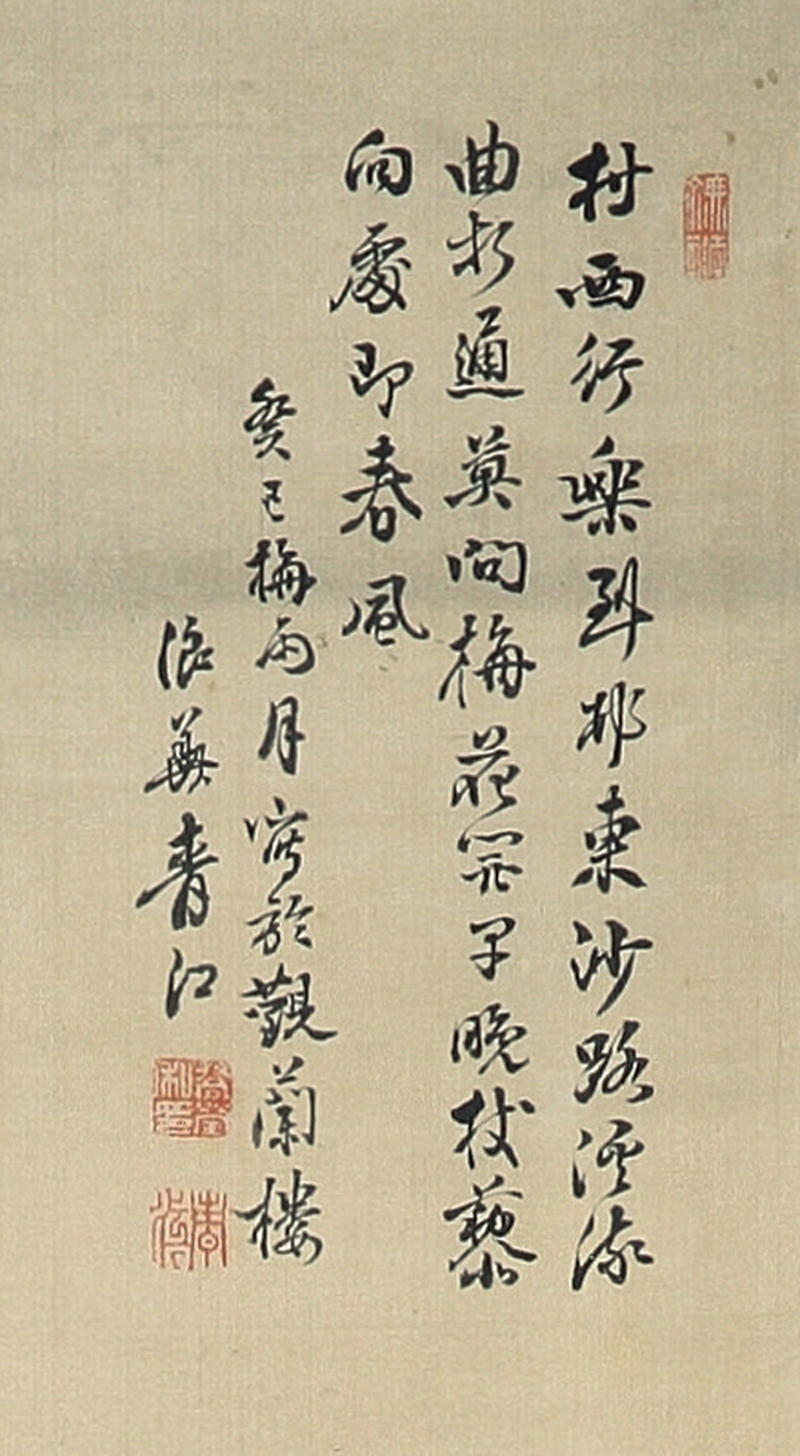 村西行樂到邨東沙路溪流
曲折通莫問梅花開早晚杖藜
向處即春風
癸巳梅雨月寫於觀蘭樓
浪華青江